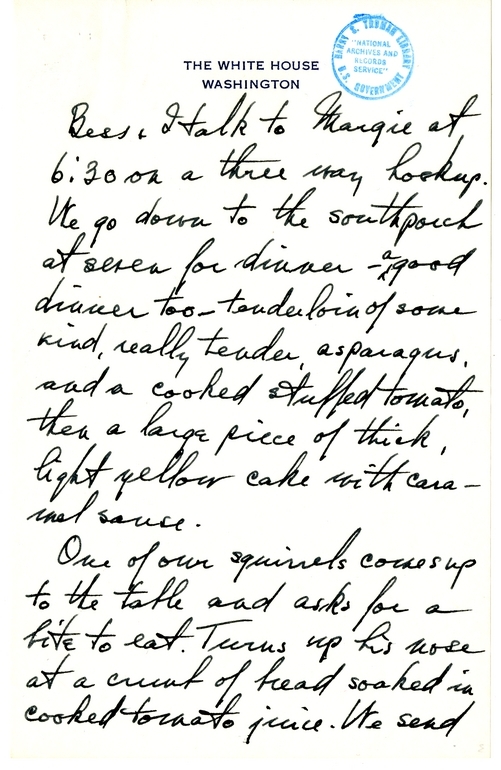 HARRY S. TRUMAN LIBRARY
"NATIONAL
ARCHIVES AND
RECORDS
SERVICE"
U.S. GOVERNMENT
THE WHITE HOUSE
WASHINGTON
Bess & I talk to Margie at
6:30 on a three way hookup.
We go down to the south porch
at seven for dinner - a good
dinner too - tenderloin of some
kind, really tender, asparagus,
and a cooked stuffed tomato,
then a large piece of thick,
light yellow cake with cara-
mel sause.
One of our squirrels comes up
to the table and asks for a
bite to eat. Turns up his nose
at a crumb of bread soaked in
cooked tomato juice. We send